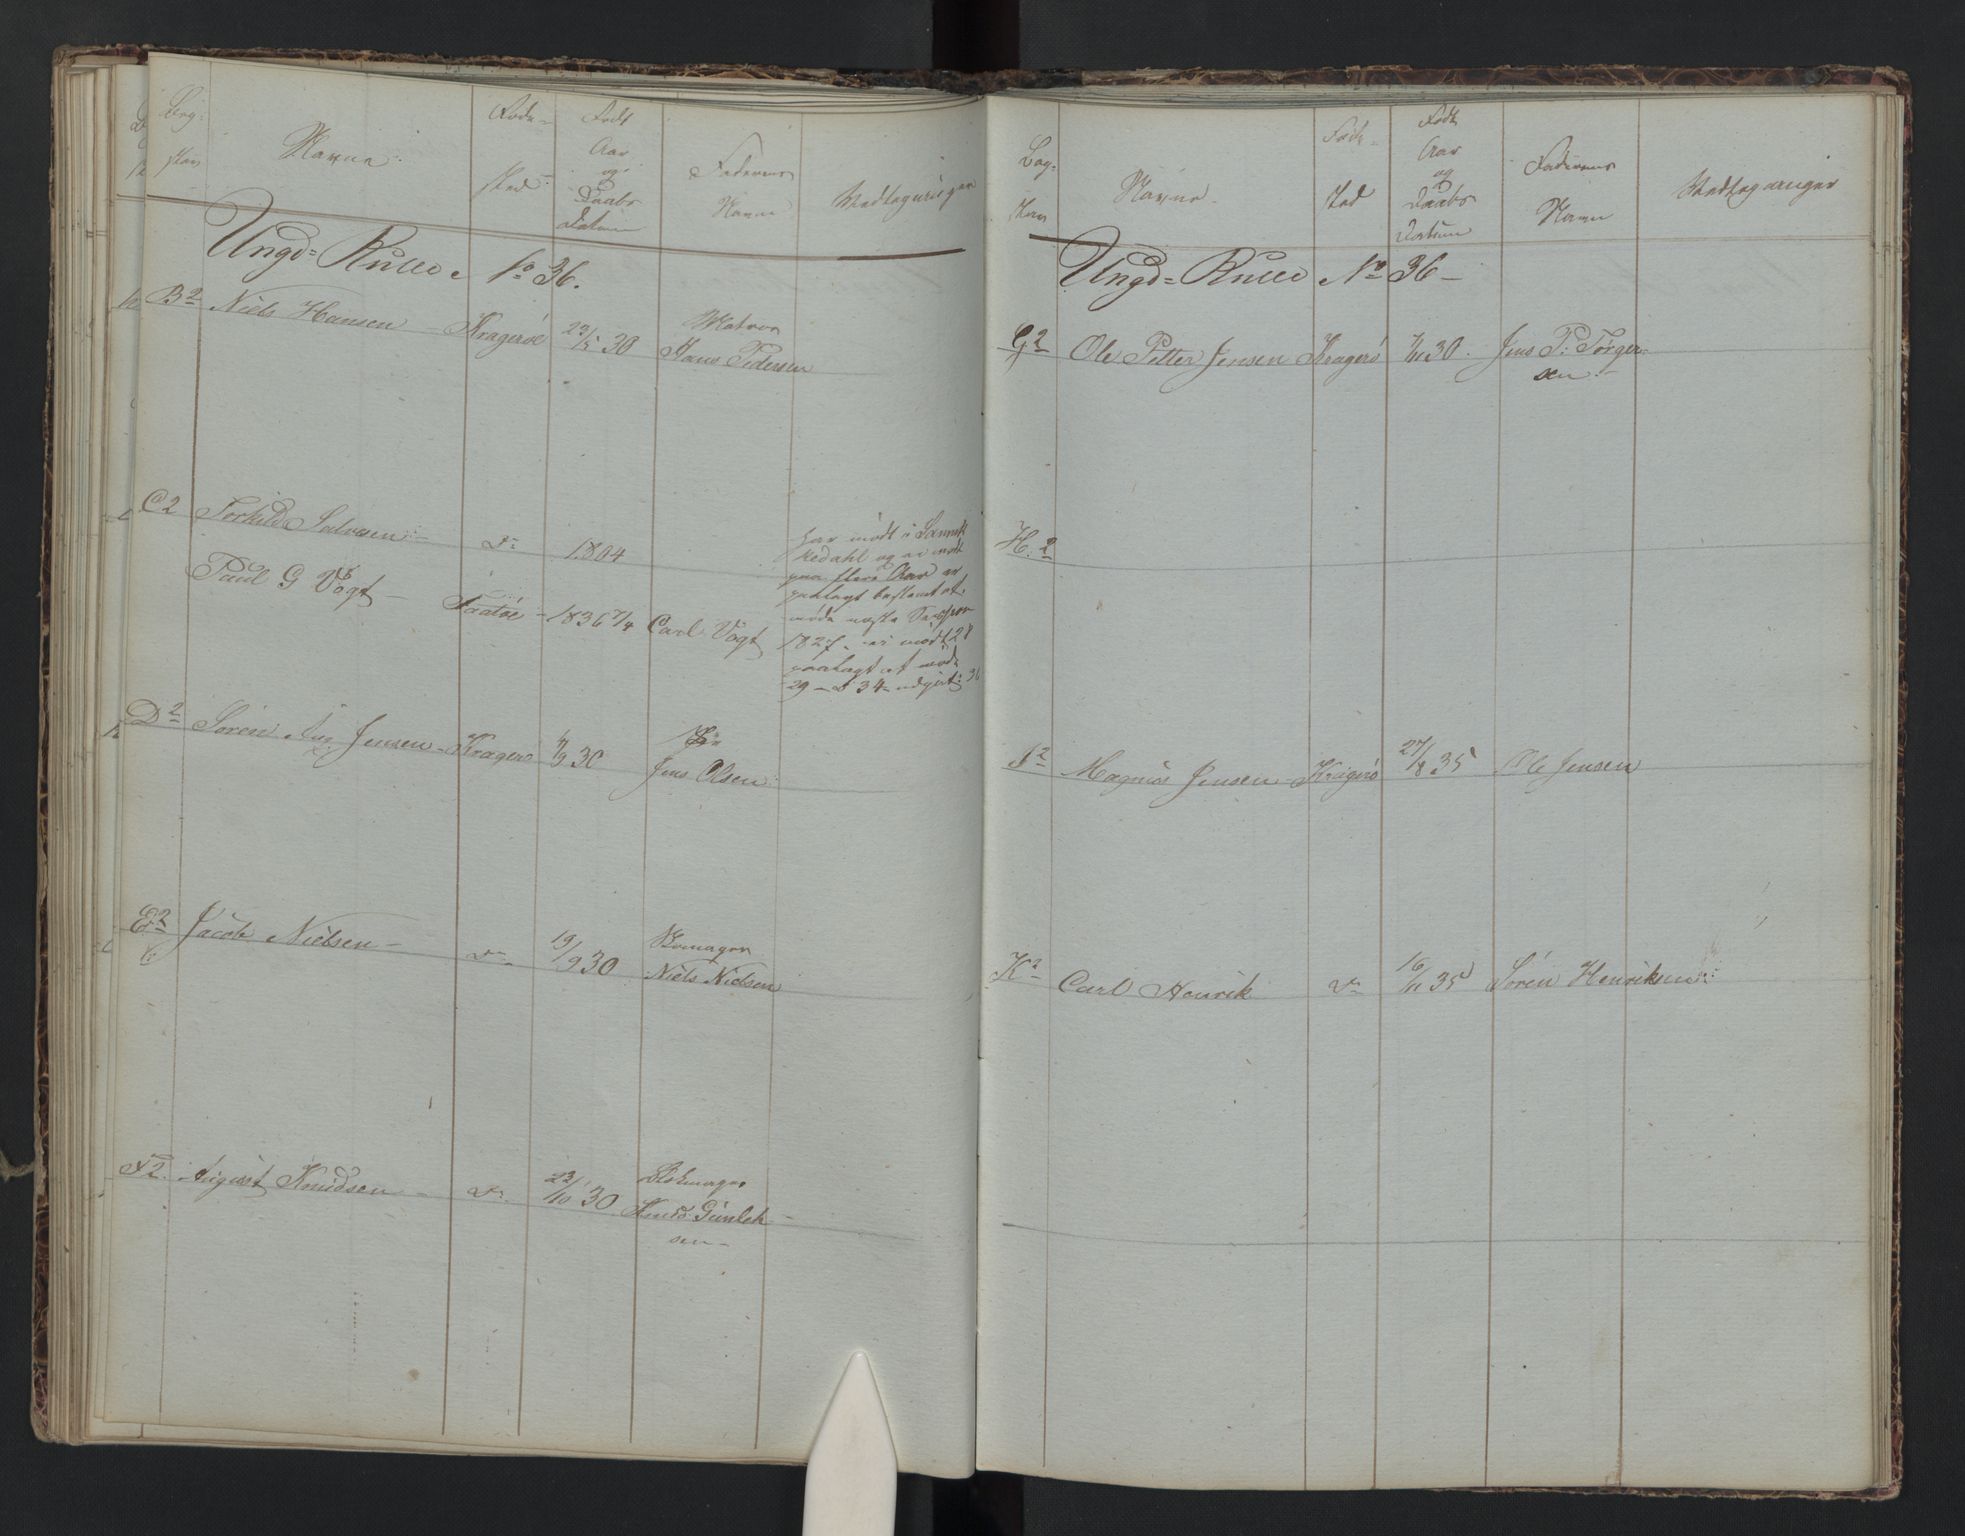 Bog-
stav
Navne
Føde-
sted
Født
Aar
og
Daabs
Datum
Faderens
Navne
Vedtegninger
Ungd= Rulle No 36.
B2 Niels Hansen - Kragerøe 23/5 30 Matros
Hans Pedersen
C2 Torkild Salvesen - Do 1804
har mødt i
og ei mødt
paa flere Aar er
paalagt bestemt at
møde næste Session
1827. ei mødt 28
paalagt at møde
29 - 34 - udgjort: 36
Paul G Vogt - Taatøe - 1836 7/4 Carl Vogt
D2 Søren Aug Jensen - Kragerø 4/9 30
Jens Olsen
E2 Jacob Nielsen - Do 19/9 30
Niels Nielsen
F2. August Knudsen - Do. 23/10 30 Blokmager
Knud Gunlek-
sen -
Bog-
stav
Navne
Føde-
sted
Født
Aar
og
Daabs
Datum
Faderens
Navn
Vedtegninger
Ungd= Rulle No 36 -
G2 Ole Petter Jensen Kragerø /11 30. Jens P: Torger-
sen -
H. 2
I2 Magnus Jensen - Kragerø 27/8 35 Ole Jensen
K2 Carl Henrik Do 16/11 35 Søren Henriksen